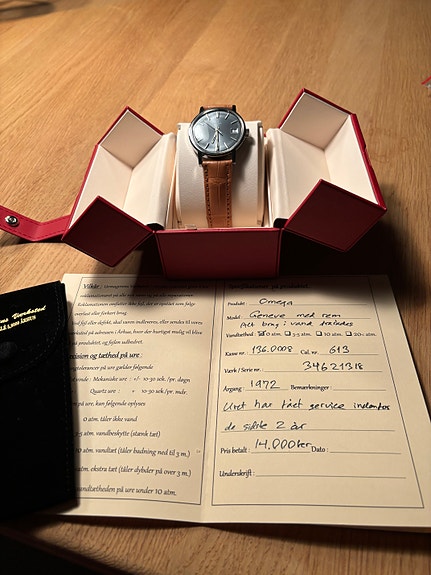 Vilkår:
Reklamationen omfatter ikke fejl, der er opstået som følge
eller forkert brug.
fejl eller defekt, skal uret indleveres, eller sendes til vores
på adressen i Århus, hvor det hurtigst mulig vil blive
produktet, og fejlen udbedret.
og tæthed på ure:
på ure gælder følgende
Mekaniske ure : +/- 10-30 sek./pr. døgn
Quartz ure : + 10-30 sek./pr. mdr.
på ure, kan følgende oplyses
0 atm. tåler ikke vand
vandbeskytte (stænk tæt)
atm. vandtæt (tåler badning ned til 3 m.)
atm. ekstra tæt (tåler dybder på over 3 m.)
vandtætheden på ure under 10 atm.
Produkt: Omega
Model: Geneve med rem
Alt brug i vand frarådes
Vandtæthed: 0 atm. 3-5 atm. 10 atm. 20+ atm.
Kasse nr.: 136.0008 Cal. nr. 613
Værk / Serie nr.: 34621318
Årgang: 1972 Bemærkninger:
Uret har fået service indenfor
de sidste 2 år
Pris betalt: 14.000kr Dato:
Underskrift: